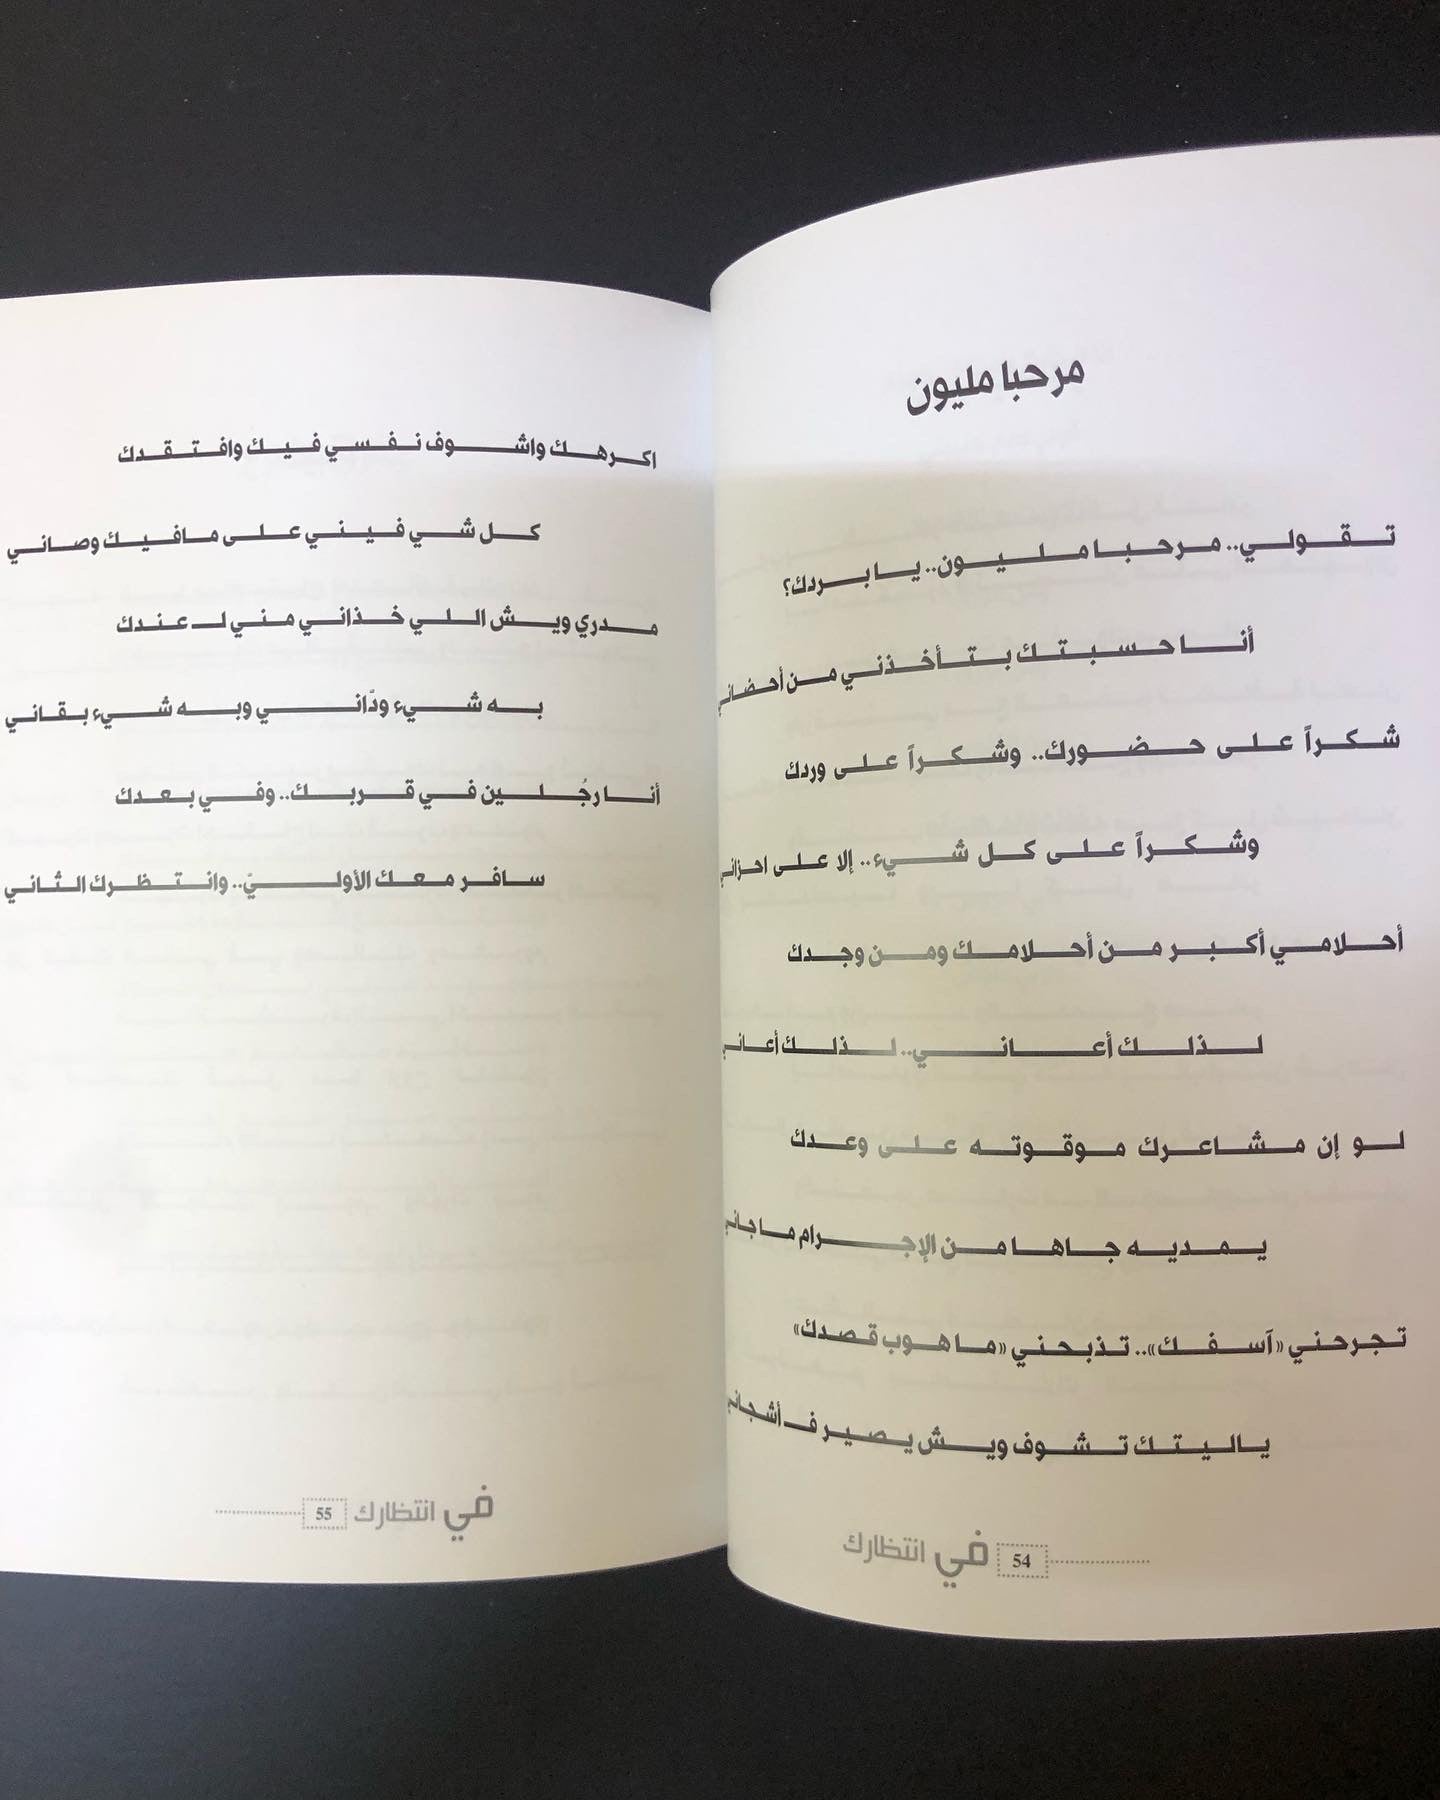 مرحبا مليون
تقولي.. مرحبا مليون.. يا بردك؟
أنا حسبتك بتأخذني من أحضاني
شكراً على حضورك.. وشكراً على وردك
وشكراً على كل شيء.. إلا على احزاني
أحلامي أكبر من أحلامك ومن وجدك
لذلك أعاني.. لذلك أعاني
لو إن مشاعرك موقوته على وعدك
يمديه جاها من الإجرام ما جاني
تجرحني «آسفك».. تذبحني «ما هوب قصدك»
ياليتك تشوف ويش يصير فـ أشجاني
54 في انتظارك
اكرهك واشوف نفسي فيك وافتقدك
كل شي فيني على مافيك وصاني
مدري ويش اللي خذاني مني لـ عندك
به شيء ودّاني وبه شيء بقاني
أنا رجُلين في قربك.. وفي بعدك
سافر معك الأوليّ.. وانتظرك الثاني
55 في انتظارك